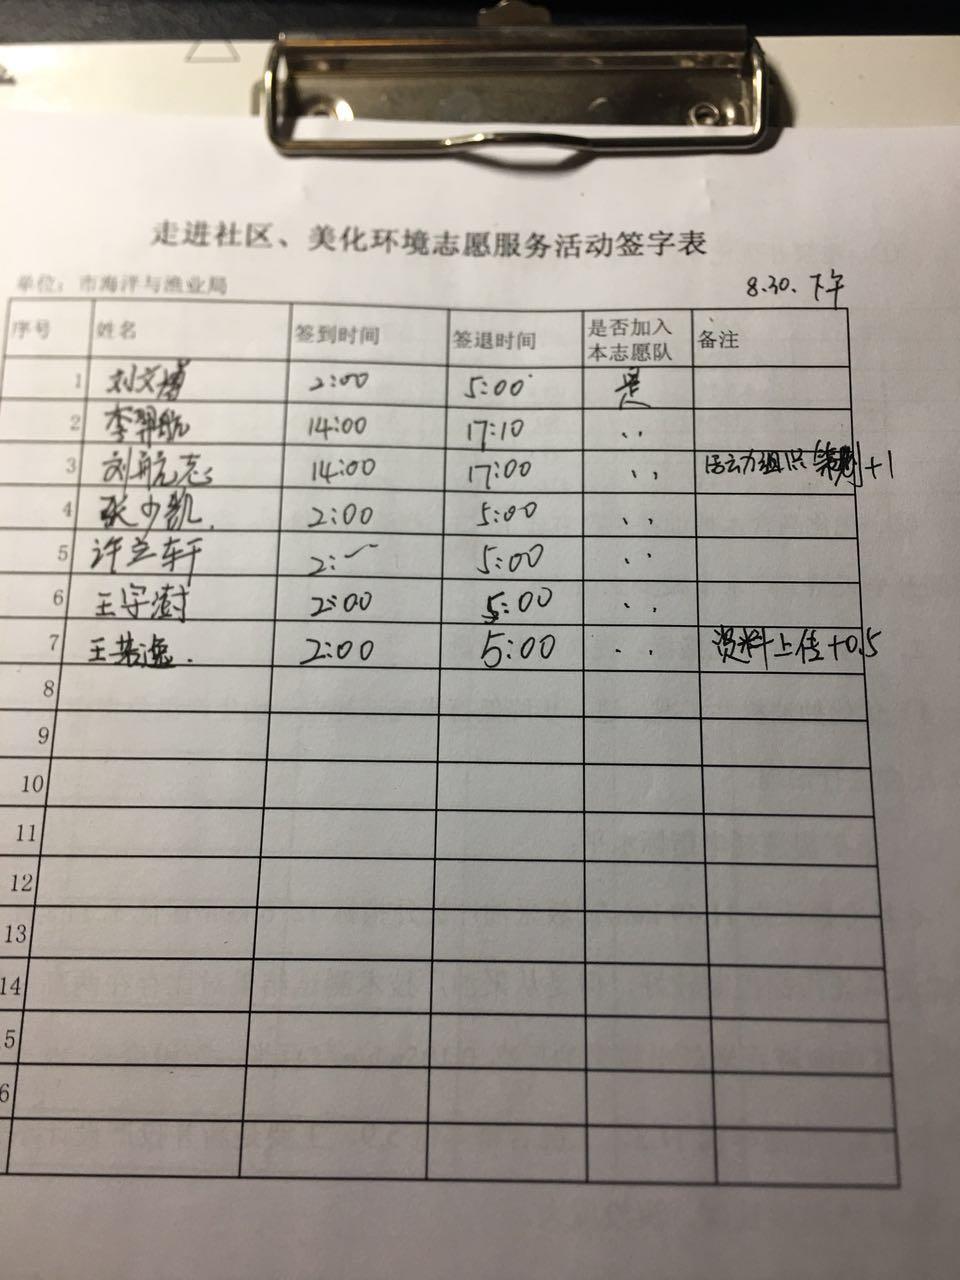 走进社区、美化环境志愿服务活动签字表
单位：市海洋与渔业局 8.30.下午
序号 姓名 签到时间 签退时间 是否加入本志愿队 备注
1 刘文博 2:00 5:00 是
2 李羿航 14:00 17:10 〃
3 刘航志 14:00 17:00 〃 活动组织策划+1
4 张少凯. 2:00 5:00 〃
5 许立轩 2:〃 5:00 〃
6 王宇澍 2:00 5:00 〃
7 王若逸. 2:00 5:00 〃 资料上传+0.5
8
9
10
11
12
13
14
5
6